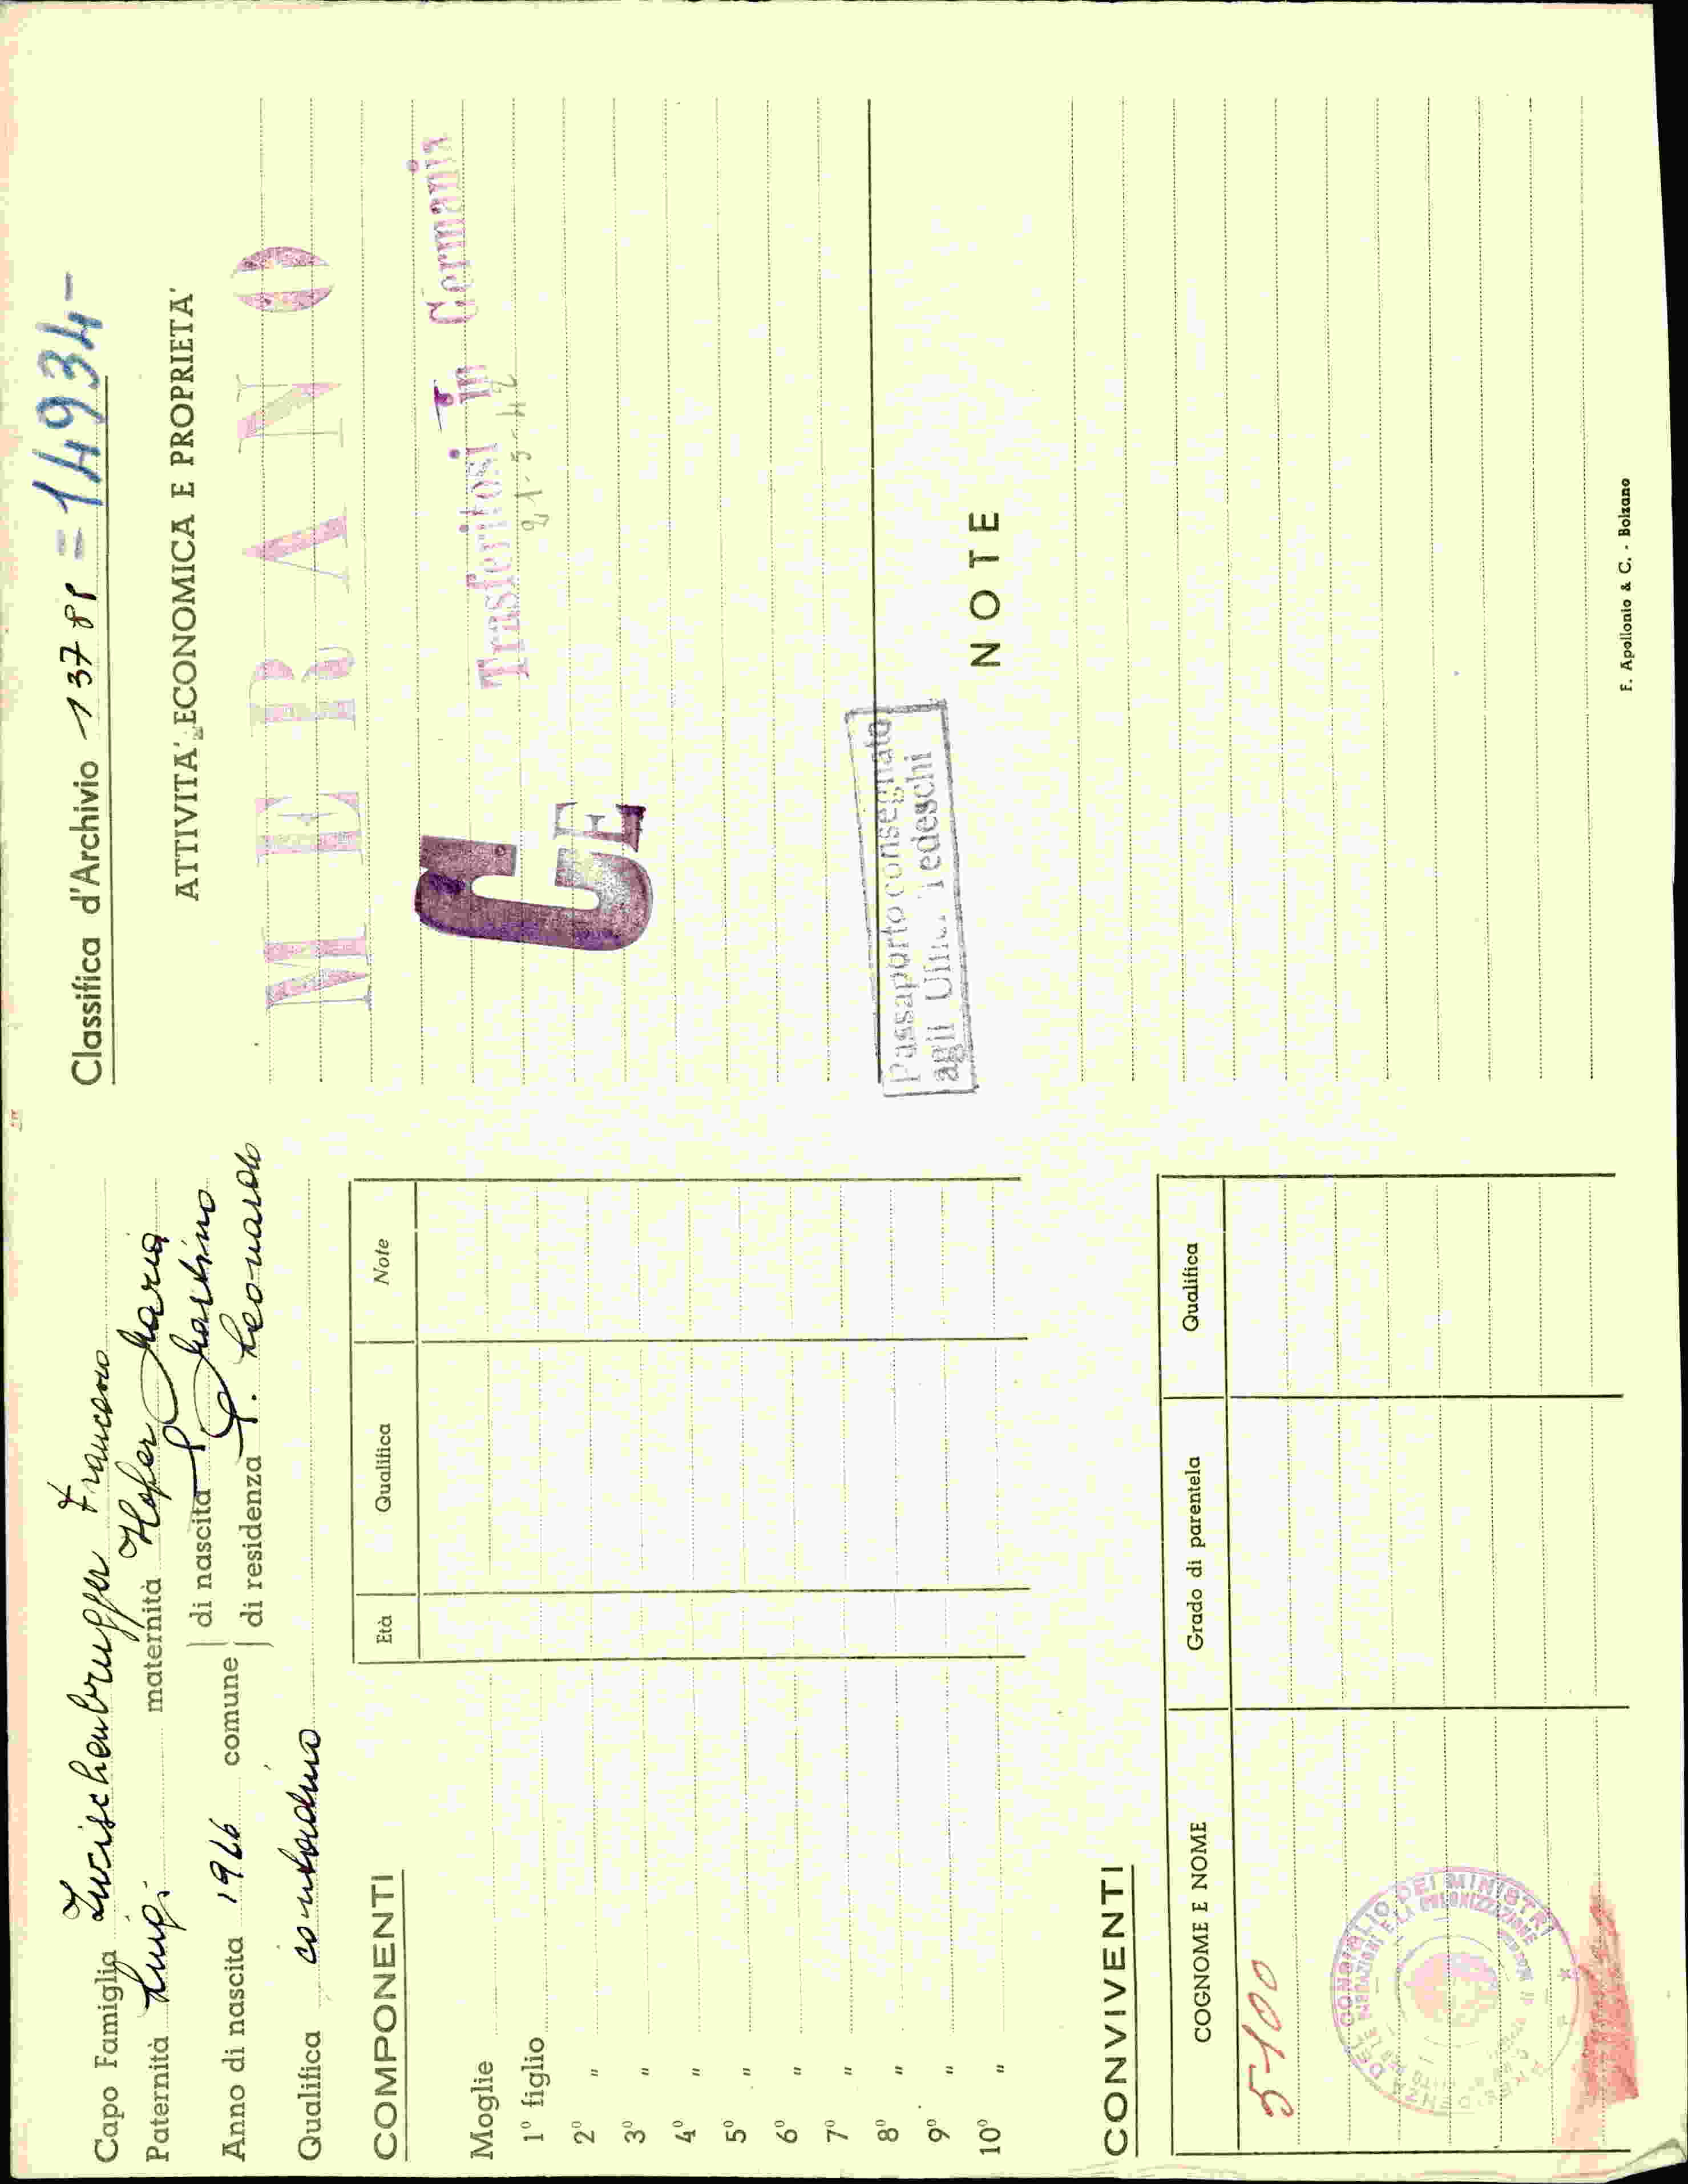 Capo Famiglia Zwischenbrugger Francesco
Paternità Luigi maternità Hofer Maria
Anno di nascita 1916 comune di nascita S. Martino
di residenza S. Leonardo
Qualifica contadino
COMPONENTI
Età Qualifica Note
Moglie
1º figlio
2º "
3º "
4º "
5º "
6º "
7º "
8º "
9º "
10º "
CONVIVENTI
COGNOME E NOME Grado di parentela Qualifica
5100
CONSIGLIO DEI MINISTRI
Classifica d'Archivio 13781 = 14934-
ATTIVITA' ECONOMICA E PROPRIETA'
MERANO
Trasferitosi In Germania
21-5-42
CE
Passaporto consegnato
agli Uffici Tedeschi
NOTE
F. Apollonio & C. - Bolzano